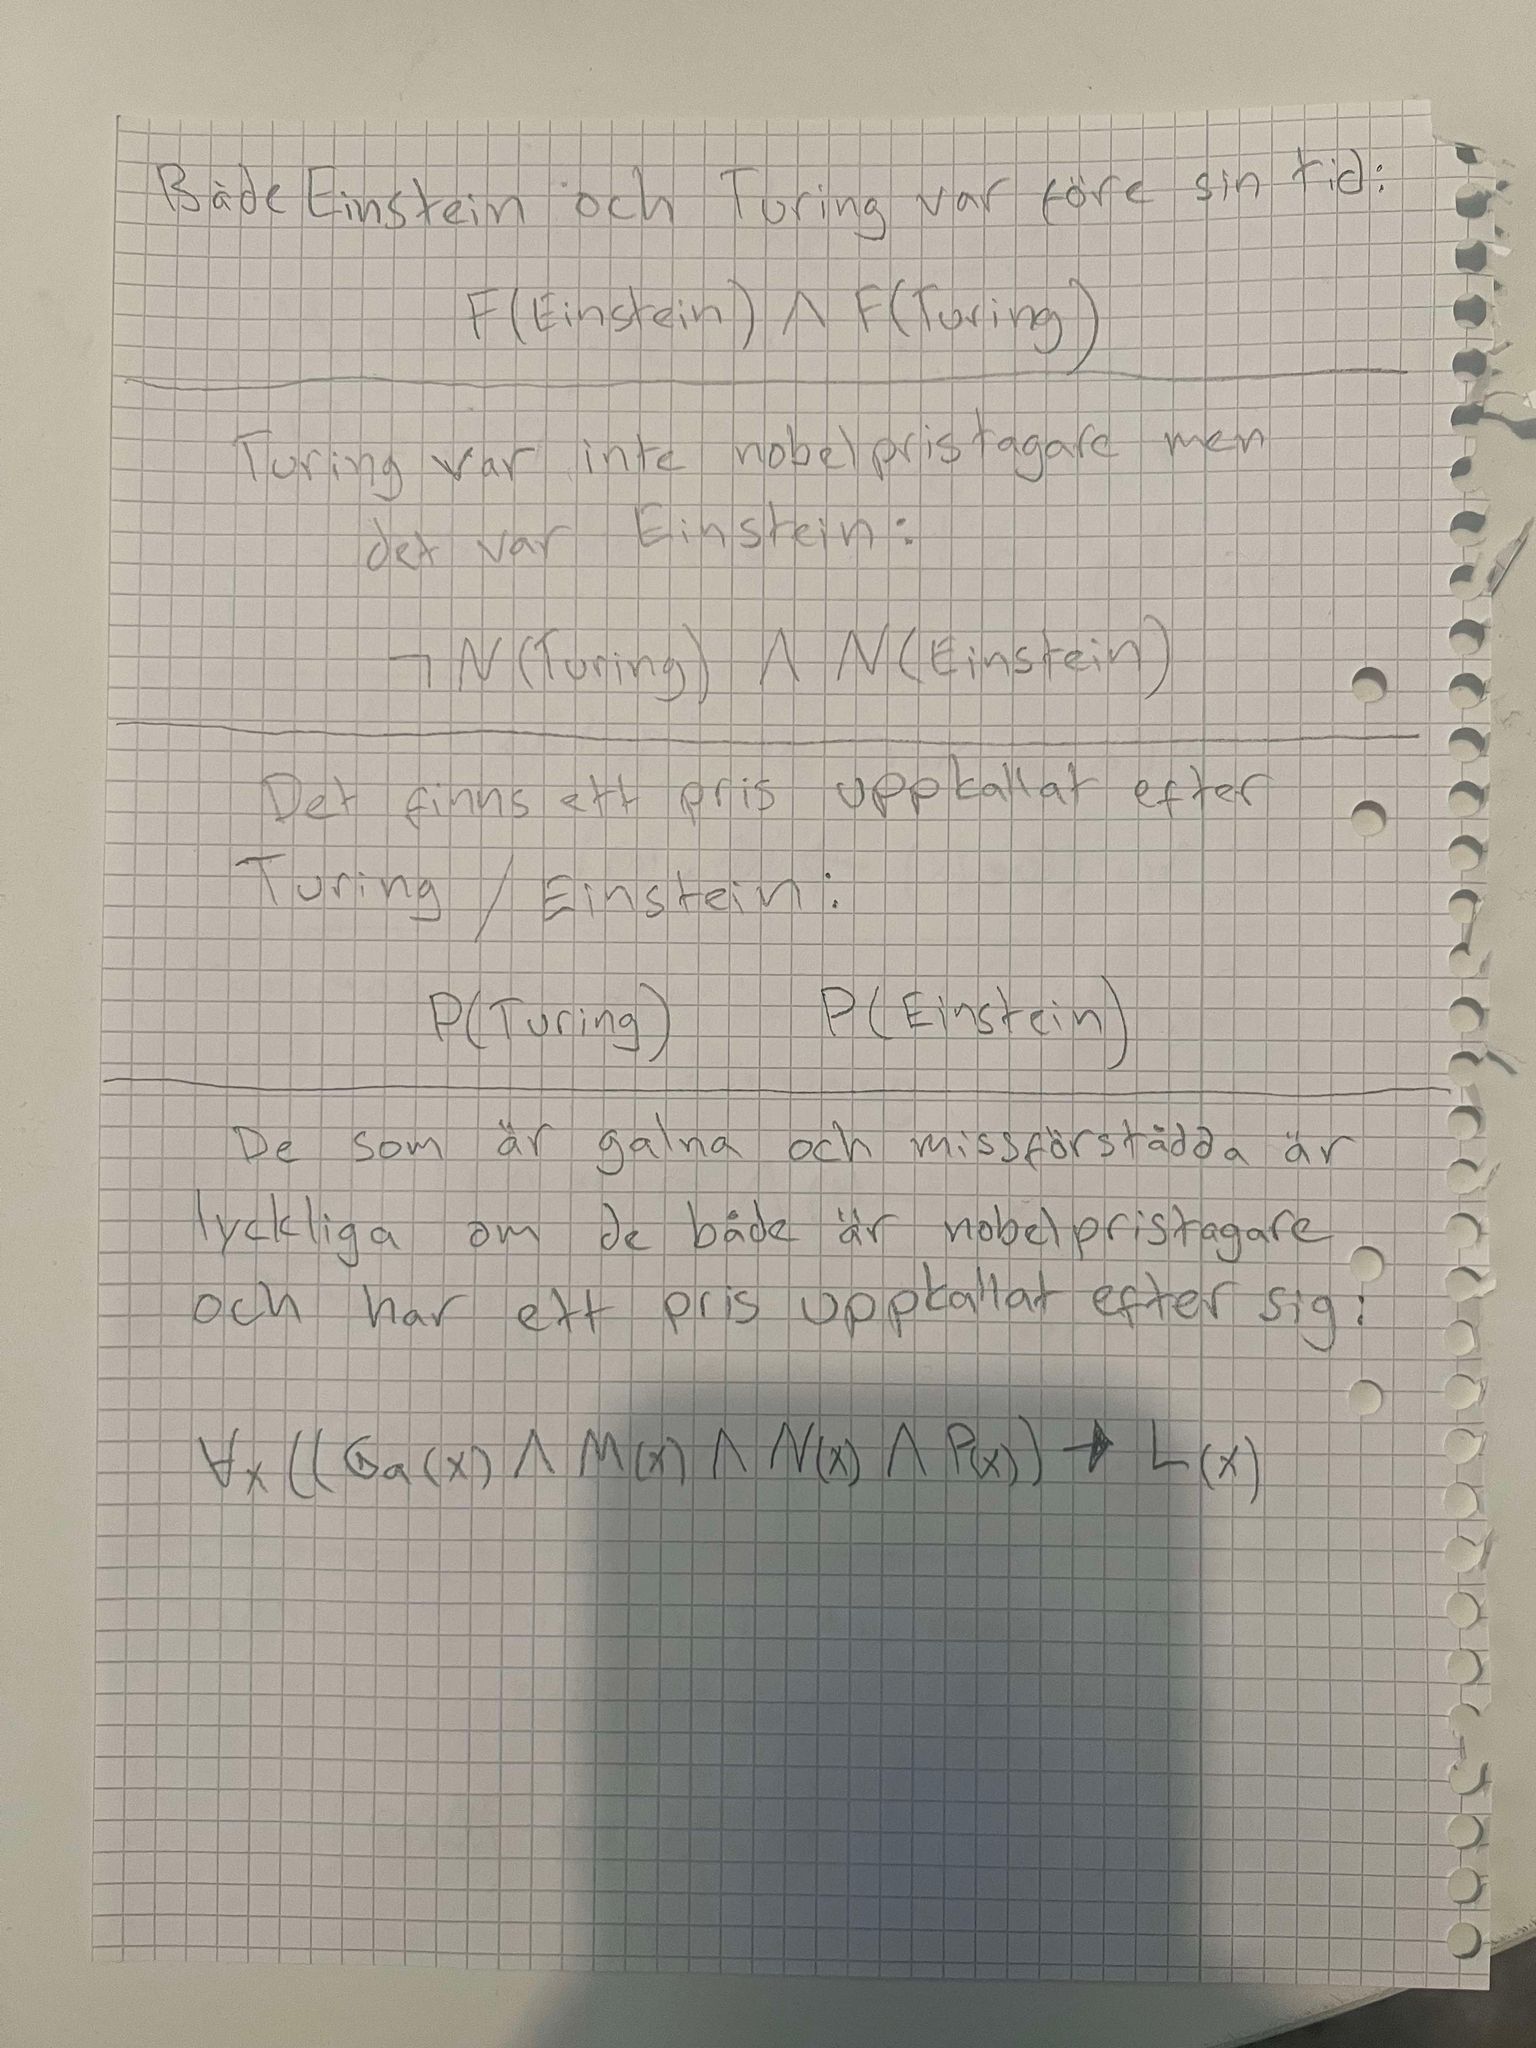 Både Einstein och Turing var före sin tid:
F(Einstein) ∧ F(Turing)
Turing var inte nobelpristagare men
det var Einstein:
¬N(Turing) ∧ N(Einstein)
Det finns ett pris uppkallat efter
Turing / Einstein:
P(Turing) P(Einstein)
De som är galna och missförstådda är
lyckliga om de både är nobelpristagare
och har ett pris uppkallat efter sig:
∀x((Ga(x) ∧ M(x) ∧ N(x) ∧ P(x)) → L(x)